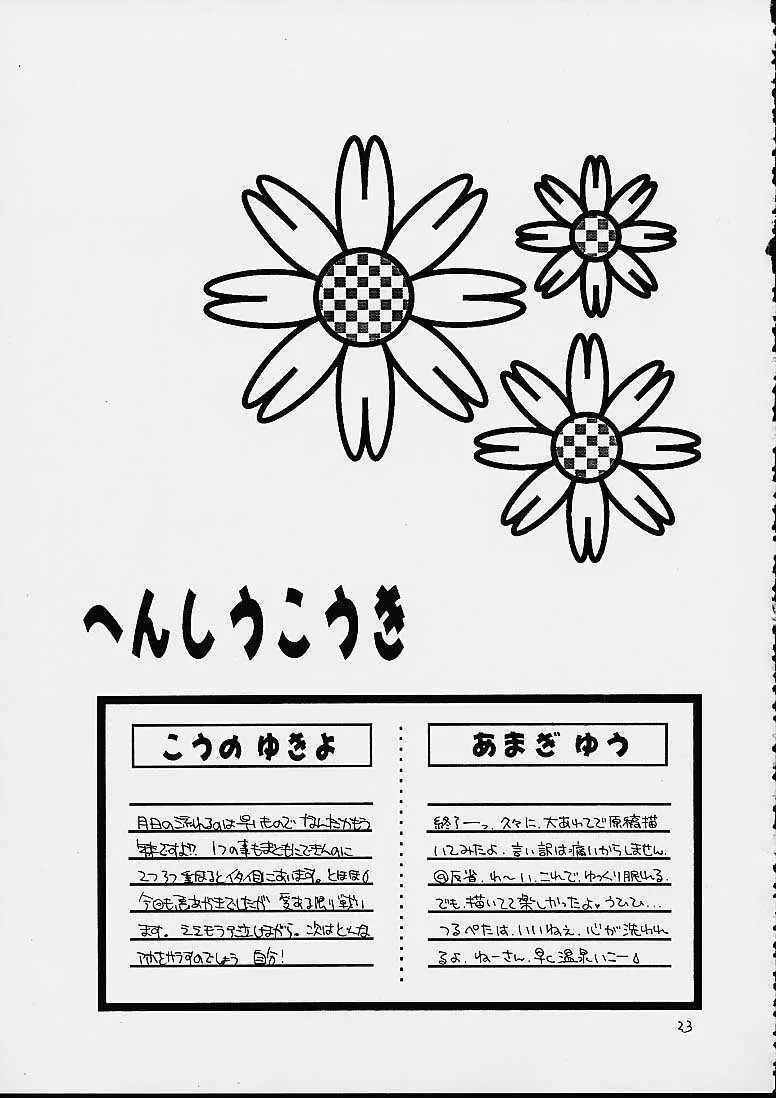 へんしうこうき
こうの ゆきよ
月日の流れるのは早いもので なんだかもう
年末ですよ!? 1つの事もまともにできんのに
2つ3つ重なるとイタイ目にあいます。とほほ
今回も君あやきでしたが 愛ある限り戦い
ます。ミミモラテ泣しながら。次はどんな
アホをやらかすのでしょう 自分!
あまぎ ゆう
終了ーっ。久々に、大あわてで原稿描
いてみたよ。言い訳は痛いからしません。
反省。わ〜い、これで、ゆっくり眠れる。
でも、描いてて楽しかったよ♥うひひ…
つるぺたは、いいねぇ、心が洗われ
るよ。ねーさん、早く温泉いこー♪
23